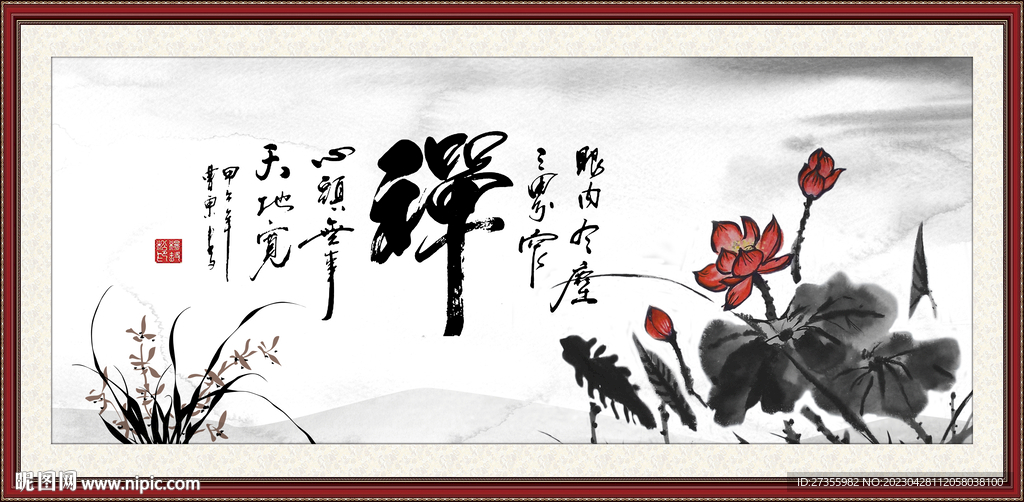 眼内有塵
三界窄
禪
心頭無事
天地寬
甲午年
昵图网 www.nipic.com
ID:27355982 NO:20230428112058038100